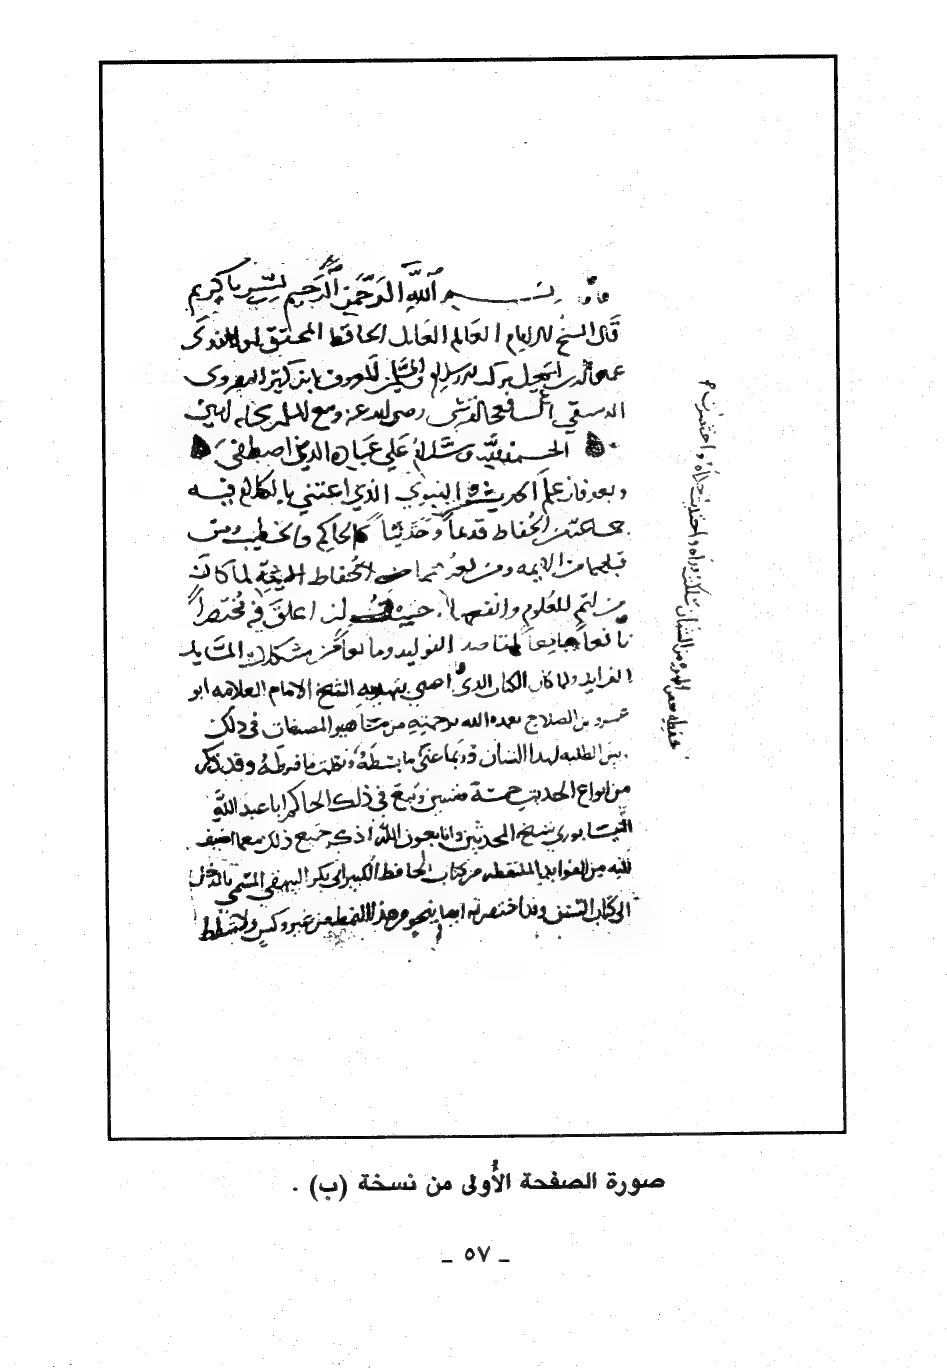 بسم الله الرحمن الرحيم يسر يا كريم
قال الشيخ الامام العالم العامل الحافظ المحقق
عماد الدين اسمعيل بركة الاسلام والمسلمين المعروف بابن كثير
الدمشقي الشافعي القرشي رضي الله عنه
الحمد لله وسلام على عباده الذين اصطفى
وبعد فان علم الحديث النبوي الذي اعتنى بالكلام فيه
جماعة من الحفاظ قديماً وحديثاً كالحاكم والخطيب ومن
قبلهما من الايمه ومن بعدهما من الحفاظ لما كان
من اهم العلوم وانفعها احببت ان اعلق فيه مختصراً
نافعاً جامعاً لمقاصد الفوايد ومانعاً من مشكلات المسايل
الفرايد ولما كان الكتاب الذي اعتنى بتهذيبه الشيخ الامام العلامه ابو
عمرو بن الصلاح تغمده الله برحمته من مشاهير المصنفات في ذلك
بين الطلبه لهذا الشان وربما عنى ما بسطه ونظمت ما فرطه وقد ذكر
من انواع الحديث خمسة وستين وتبع في ذلك الحاكم ابا عبد الله
النيسابوري شيخ المحدثين وانا بعون الله اذكر جميع ذلك مع ما اضيف
اليه من الفوايد الملتقطه من كتاب الحافظ الكبير ابي بكر البيهقي المسمى بالمدخل
الى كتاب السنن وقد اختصرته ايضا بنحو من هذا النمط من غير وكس ولا شطط
صورة الصفحة الأُولى من نسخة (ب) .
ـ ٥٧ ـ